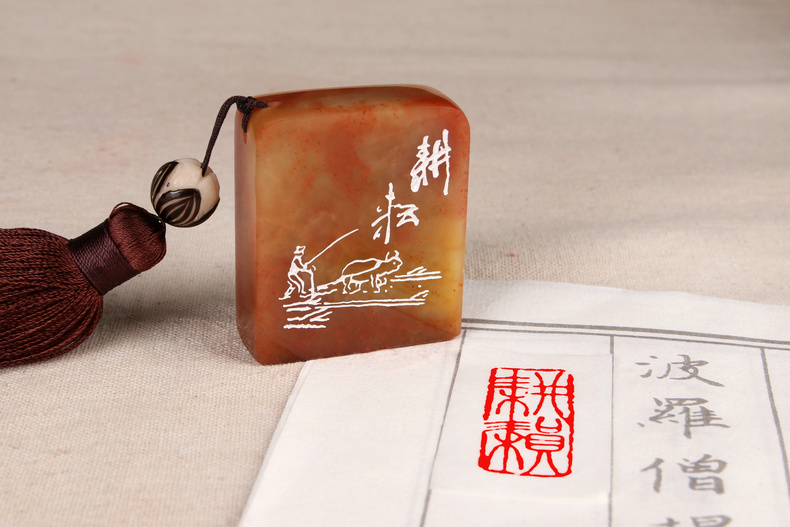 耕
耘
耕
耘
波羅僧